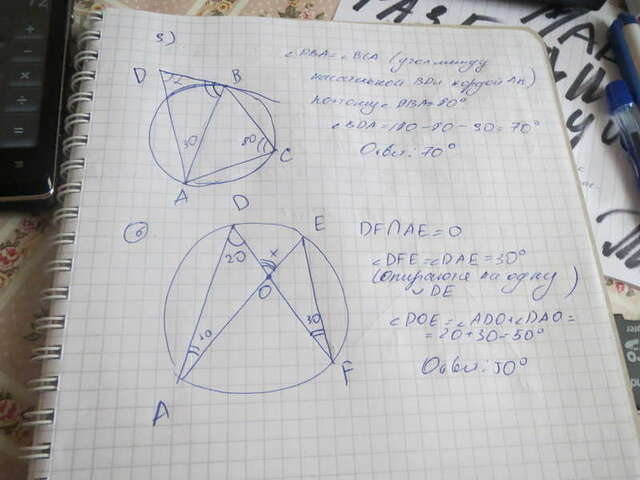 5)
D
B
30
80
C
A
∠DBA=∠BCA (угол между
касательной BD и хордой AB)
поэтому ∠DBA=80°
∠BDA=180-80-30=70°
Ответ: 70°
6
D
E
20
x
O
30
30
F
A
DF∩AE=O
∠DFE=∠DAE=30°
(опираются на одну
◡DE
)
∠DOE=∠ADO+∠DAO=
=20+30=50°
Ответ: 50°